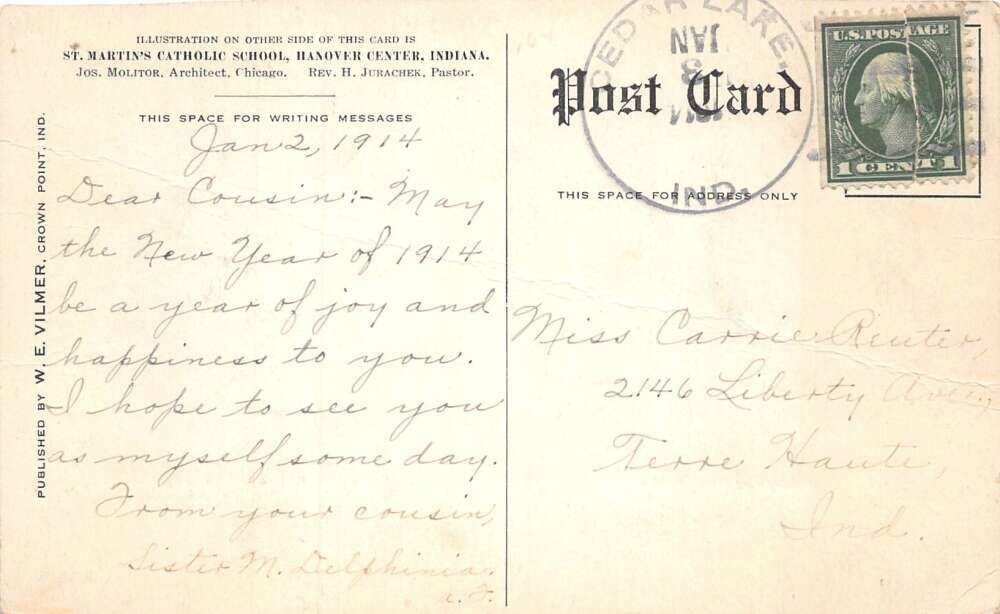 ILLUSTRATION ON OTHER SIDE OF THIS CARD IS
ST. MARTIN'S CATHOLIC SCHOOL, HANOVER CENTER, INDIANA.
JOS. MOLITOR, Architect, Chicago. REV. H. JURACHEK, Pastor.
THIS SPACE FOR WRITING MESSAGES
Jan 2, 1914
Dear Cousin:- May
the New Year of 1914
be a year of joy and
happiness to you.
I hope to see you
as myself some day.
From your cousin,
Sister M. Delphinia.
PUBLISHED BY W. E. VILMER, CROWN POINT, IND.
Post Card
THIS SPACE FOR ADDRESS ONLY
CEDAR LAKE,
JAN
3
IND.
U.S. POSTAGE
1 CENT 1
Miss Carrie Reuter,
2146 Liberty Ave.,
Terre Haute,
Ind.